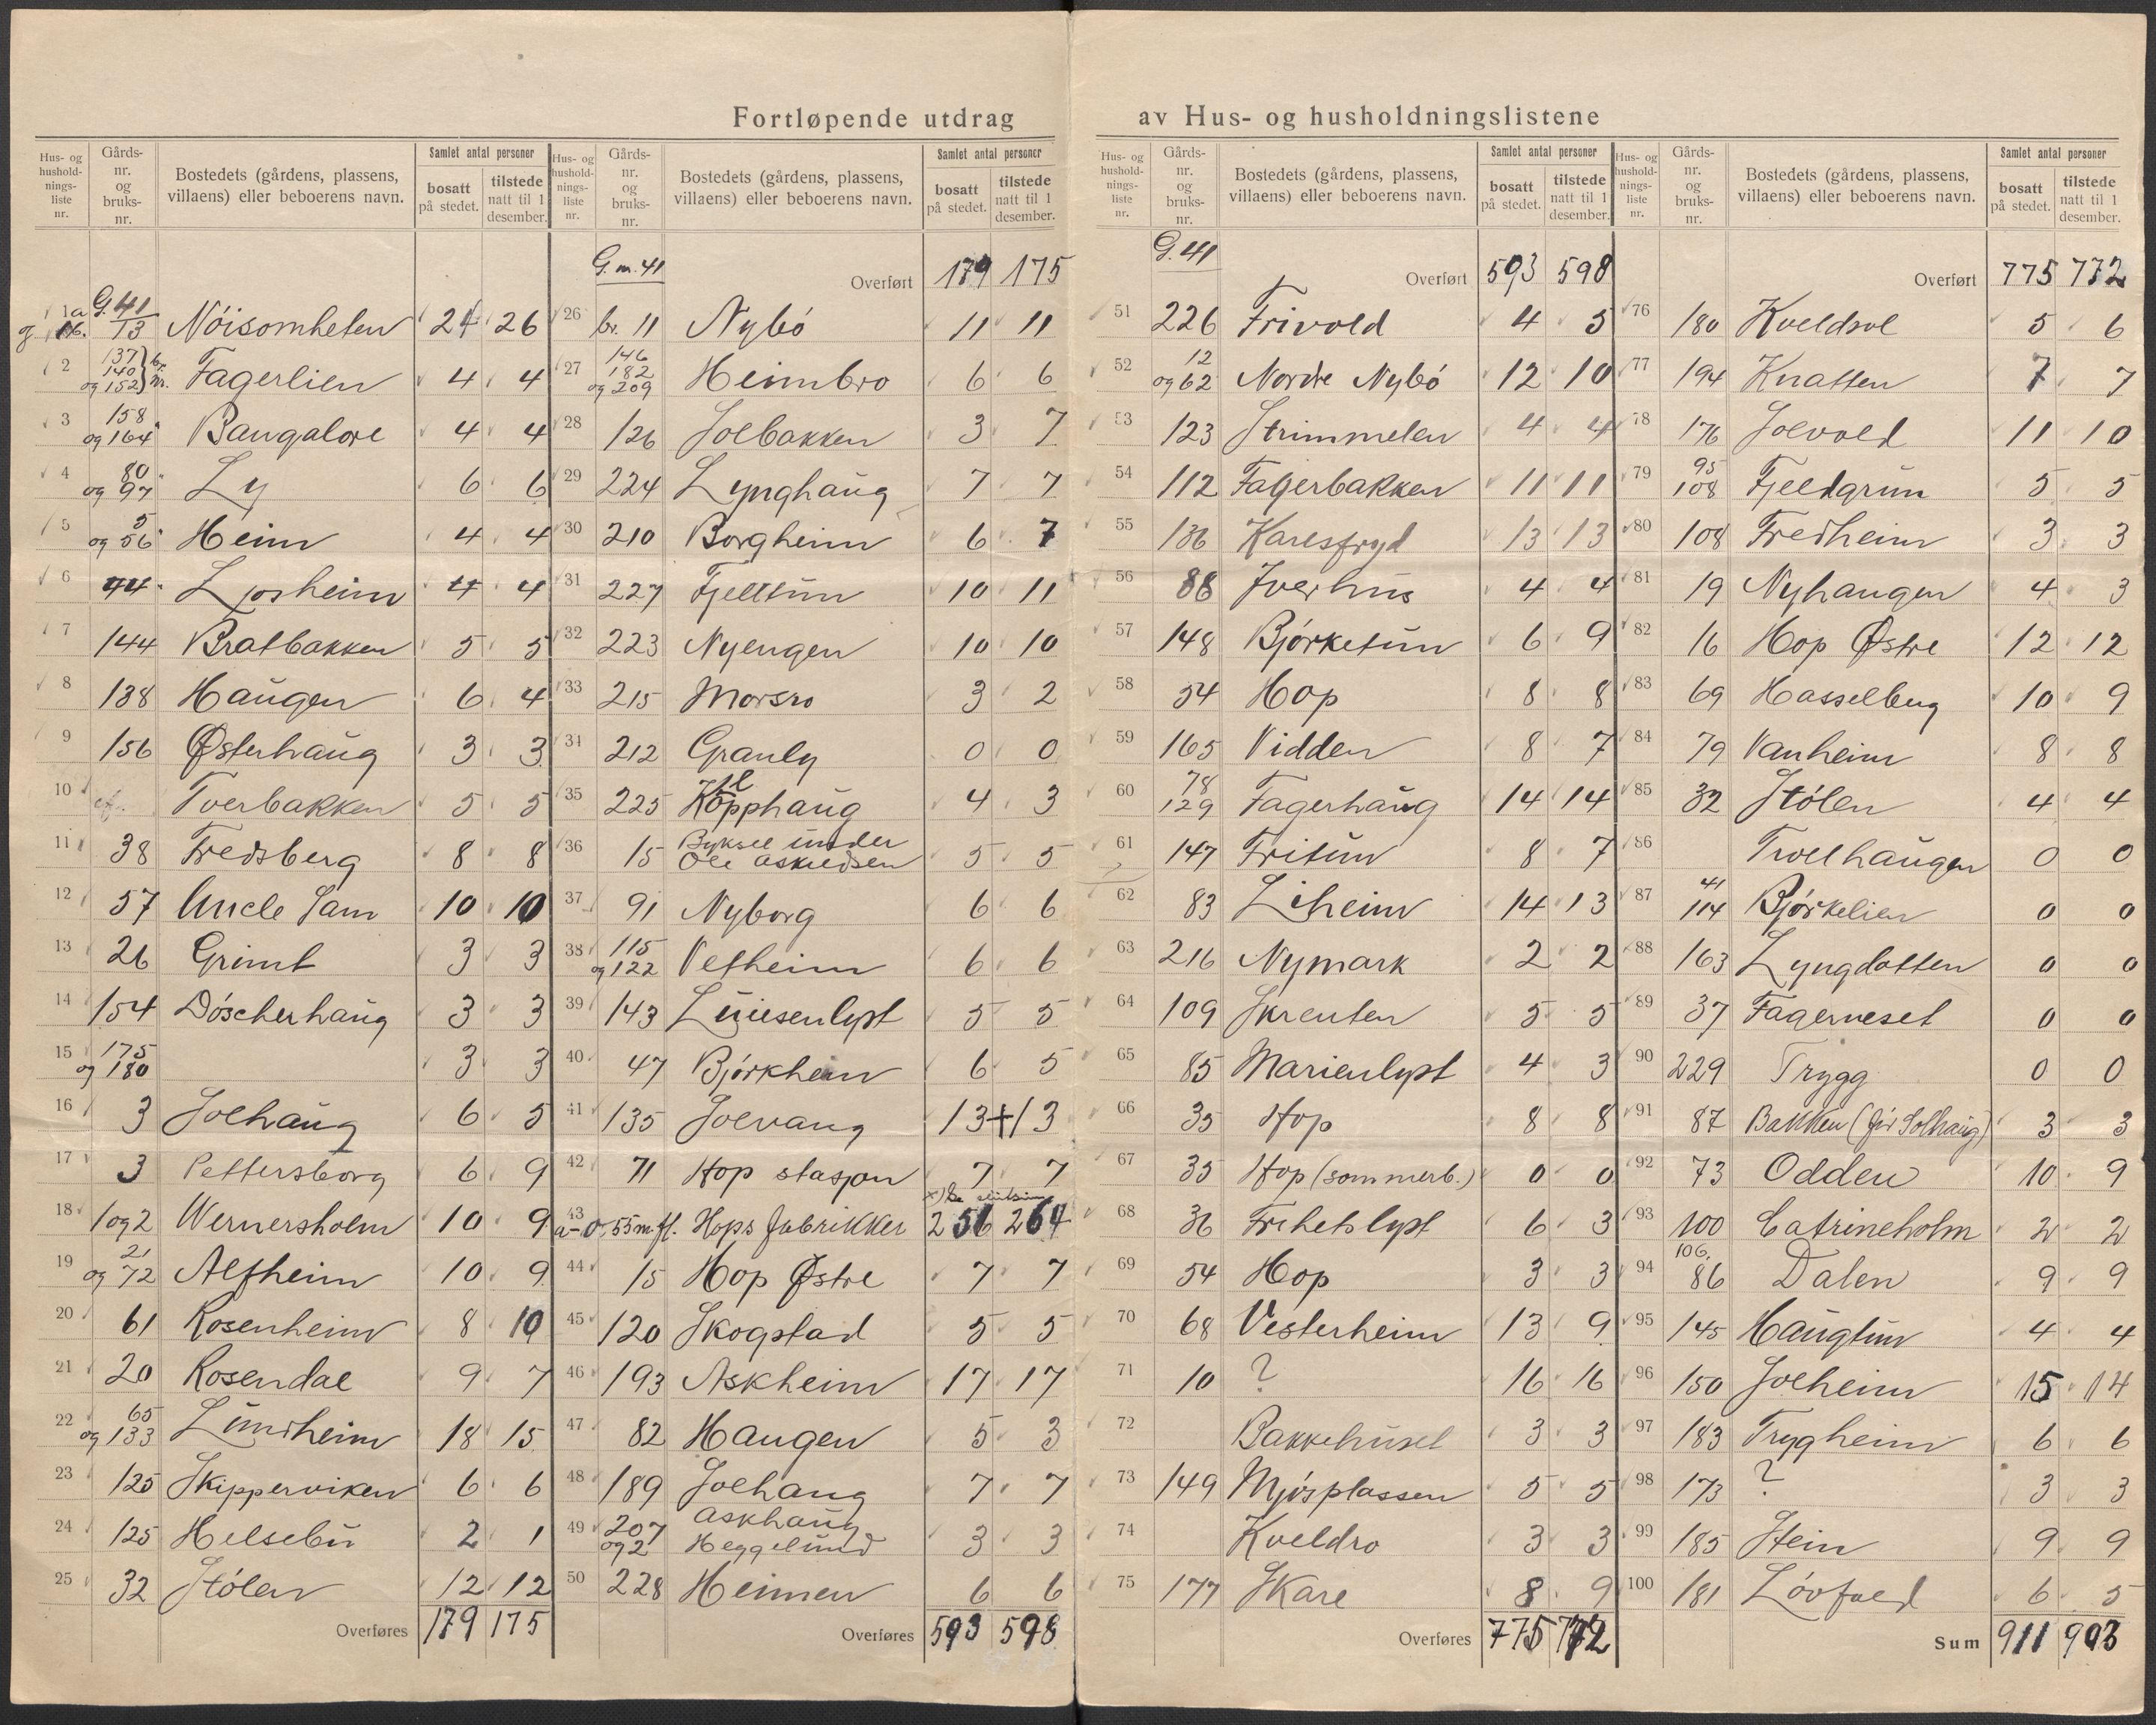 Fortløpende utdrag av Hus- og husholdningslistene
Hus- og husholdnings-liste nr. Gårds-nr. og bruks-nr. Bostedets (gårdens, plassens, villaens) eller beboerens navn. Samlet antal personer bosatt på stedet. tilstede natt til 1 desember.
Hus- og husholdnings-liste nr. Gårds-nr. og bruks-nr. Bostedets (gårdens, plassens, villaens) eller beboerens navn. Samlet antal personer bosatt på stedet. tilstede natt til 1 desember.
Hus- og husholdnings-liste nr. Gårds-nr. og bruks-nr. Bostedets (gårdens, plassens, villaens) eller beboerens navn. Samlet antal personer bosatt på stedet. tilstede natt til 1 desember.
Hus- og husholdnings-liste nr. Gårds-nr. og bruks-nr. Bostedets (gårdens, plassens, villaens) eller beboerens navn. Samlet antal personer bosatt på stedet. tilstede natt til 1 desember.
1a og 1b. G. 41 13 Nöisomheten 24 26
2 137 140 og 152 br. nr. Fagerlien 4 4
3 158 og 164 Bangalore 4 4
4 80 og 97 Ly 6 6
5 5 og 56 Heim 4 4
6 44 Ljosheim 4 4
7 144 Bratbakken 5 5
8 138 Haugen 6 4
9 156 Østerhaug 3 3
10 Tverbakken 5 5
11 38 Fredsberg 8 8
12 57 Uncle Sam 10 10
13 26 Grimt 3 3
14 154 Döscherhaug 3 3
15 175 og 180 3 3
16 3 Solhaug 6 5
17 3 Pettersborg 6 9
18 1 og 2 Wernersholm 10 9
19 21 og 72 Alfheim 10 9
20 61 Rosenheim 8 10
21 20 Rosendal 9 7
22 65 og 133 Lundheim 18 15
23 125 Skipperviken 6 6
24 125 Helsebu 2 1
25 32 Stölen 12 12
Overføres 179 175
G. nr. 41 Overført 179 175
26 br. 11 Nybö 11 11
27 146 182 og 209 Heimbro 6 6
28 126 Solbakken 3 7
29 224 Lynghaug 7 7
30 210 Borgheim 6 7
31 227 Fjelltun 10 11
32 223 Nyengen 10 10
33 215 Morsro 3 2
34 212 Granly 0 0
35 225 Kopphaug 4 3
36 15 Byksel under Ole Askildsen 5 5
37 91 Nyborg 6 6
38 115 og 122 Vetheim 6 6
39 143 Luisenlyst 5 5
40 47 Björkheim 6 5
41 135 Solvang 13 + 13
42 71 Hop stasjon 7 7
43 a-o, 55 m. fl. Hops fabrikker 256 264
44 15 Hop Østre 7 7
45 120 Skogstad 5 5
46 193 Askheim 17 17
47 82 Haugen 5 3
48 189 Solhaug 7 7
49 207 og 2 Askhaug Heggelund 3 3
50 228 Heimen 6 6
Overføres 593 598
G. 41 Overført 593 598
51 226 Frivold 4 5
52 12 og 62 Nordre Nybö 12 10
53 123 Strimmelen 4 4
54 112 Fagerbakken 11 11
55 136 Karesfryd 13 13
56 88 Iverhus 4 4
57 148 Björketun 6 9
58 54 Hop 8 8
59 165 Vidden 8 7
60 78 129 Fagerhaug 14 14
61 147 Fritun 8 7
62 83 Liheim 14 13
63 216 Nymark 2 2
64 109 Skrenten 5 5
65 85 Marienlyst 4 3
66 35 Hop 8 8
67 35 Hop (sommerb.) 0 0
68 36 Frihetslyst 6 3
69 54 Hop 3 3
70 68 Vesterheim 13 9
71 10 ? 16 16
72 Bakkehuset 3 3
73 149 Mjösplassen 5 5
74 Kveldro 3 3
75 177 Skare 8 9
Overføres 775 772
Overført 775 772
76 180 Kveldsol 5 6
77 194 Knatten 7 7
78 176 Solvold 11 10
79 95 108 Fjeldgrun 5 5
80 108 Fredheim 3 3
81 19 Nyhaugen 4 3
82 16 Hop Østre 12 12
83 69 Hasselberg 10 9
84 79 Vanheim 8 8
85 32 Stölen 4 4
86 Trollhaugen 0 0
87 41 114 Björkelien 0 0
88 163 Lyngdotten 0 0
89 37 Fagerneset 0 0
90 229 Trygg 0 0
91 87 Bakken (før Solhaug) 3 3
92 73 Odden 10 9
93 100 Catrineholm 2 2
94 106, 86 Dalen 9 9
95 145 Haugtun 4 4
96 150 Solheim 15 14
97 183 Trygheim 6 6
98 173 ? 3 3
99 185 Stein 9 9
100 181 Lövfald 6 5
Sum 911 903